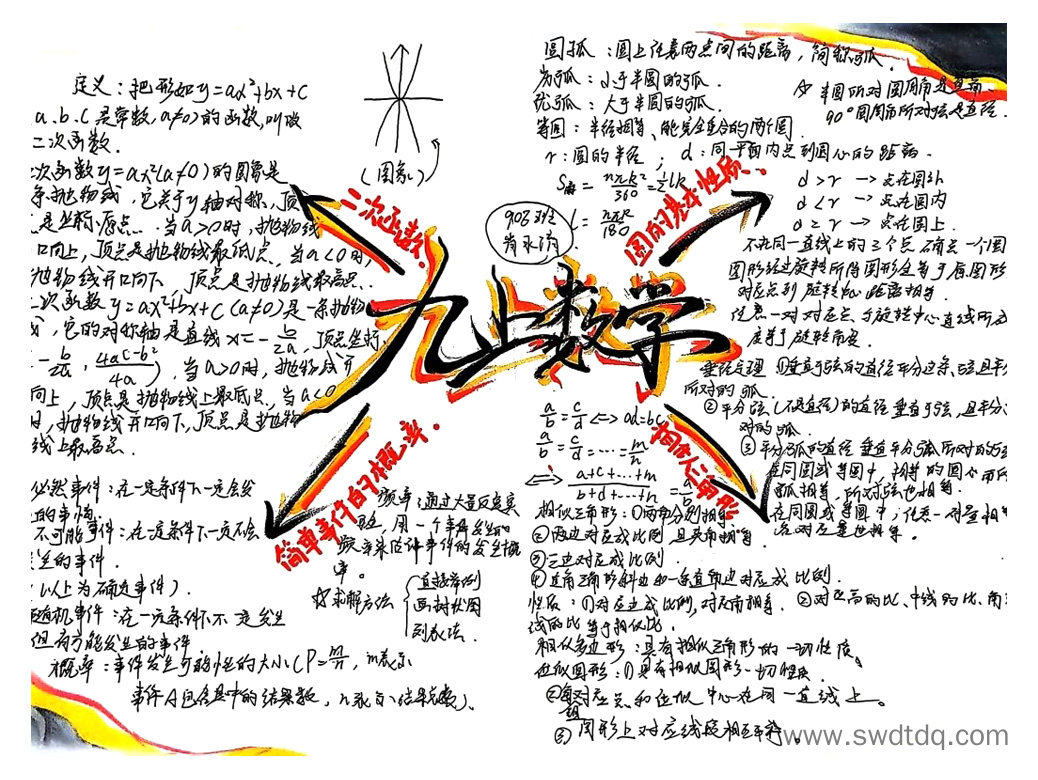 定义：把形如y=ax²+bx+c
a.b.c是常数,a≠0)的函数,叫做
二次函数.
次函数y=ax²(a≠0)的图象是
条抛物线,它关于y轴对称,顶
是坐标原点.当a>0时,抛物线
口向上,顶点是抛物线最低点.当a<0时,
抛物线开口向下,顶点是抛物线最高点.
次函数y=ax²+bx+c(a≠0)是一条抛物
它的对称轴是直线x=-b/2a,顶点坐标
-b/2a,4ac-b²/4a),当a>0时,抛物线开
向上,顶点是抛物线上最低点,当a<0
时,抛物线开口向下,顶点是抛物
线上最高点.
(图象)
二次函数.
906班
九上数学
圆的基本性质.
圆弧：圆上任意两点间的距离,简称弧.
劣弧：小于半圆的弧.
优弧：大于半圆的弧.
等圆：半径相等、能完全重合的两个圆.
r：圆的半径；d：同一平面内点到圆心的距离.
半圆所对圆周角是直角.
90°圆周角所对弦是直径.
S扇=nπR²/360=½lR
l=nπR/180
d>r → 点在圆外
d<r → 点在圆内
d=r → 点在圆上.
不在同一直线上的三个点确定一个圆
图形经过旋转所得图形全等于原图形
对应点到旋转中心距离相等.
任意一对对应点与旋转中心连线所成
度等于旋转角度.
垂径定理 ①垂直于弦的直径平分这条弦,且平分
所对的弧.
②平分弦(不是直径)的直径垂直于弦,且平分
对的弧.
③平分弧的直径垂直平分弧所对的弦
在同圆或等圆中,相等的圆心角所
弧相等,所对弦也相等.
在同圆或等圆中,任意一对量相等
对应量也相等.
相似三角形
a/b=c/d<=>ad=bc
a/b=c/d=…=m/n
=> a+c+…+m/b+d+…+n=a/b
相似三角形：①两角分别相等
②两边对应成比例,且夹角相等.
③三边对应成比例.
④直角三角形斜边和一条直角边对应成比例.
性质：①对应边成比例,对应角相等. ②对应高的比、中线的比、角
线的比等于相似比.
相似多边形：具有相似三角形的一切性质.
位似图形：①具有相似图形一切性质.
②每组对应点和位似中心在同一直线上.
③图形上对应线段相互平行.
简单事件的概率.
必然事件：在一定条件下一定会发
生的事情.
不可能事件：在一定条件下一定不会
发生的事件.
(以上为确定事件).
随机事件：在一定条件下不一定发生
但有可能发生的事件.
概率：事件发生可能性的大小(P=m/n,m表示
事件A包含其中的结果数,n表示结果总数).
频率：通过大量反复实
验,用一个事件发生的
频率来估计事件的发生概
率.
求解方法
直接举例
画树状图
列表法.
www.swdtdq.com